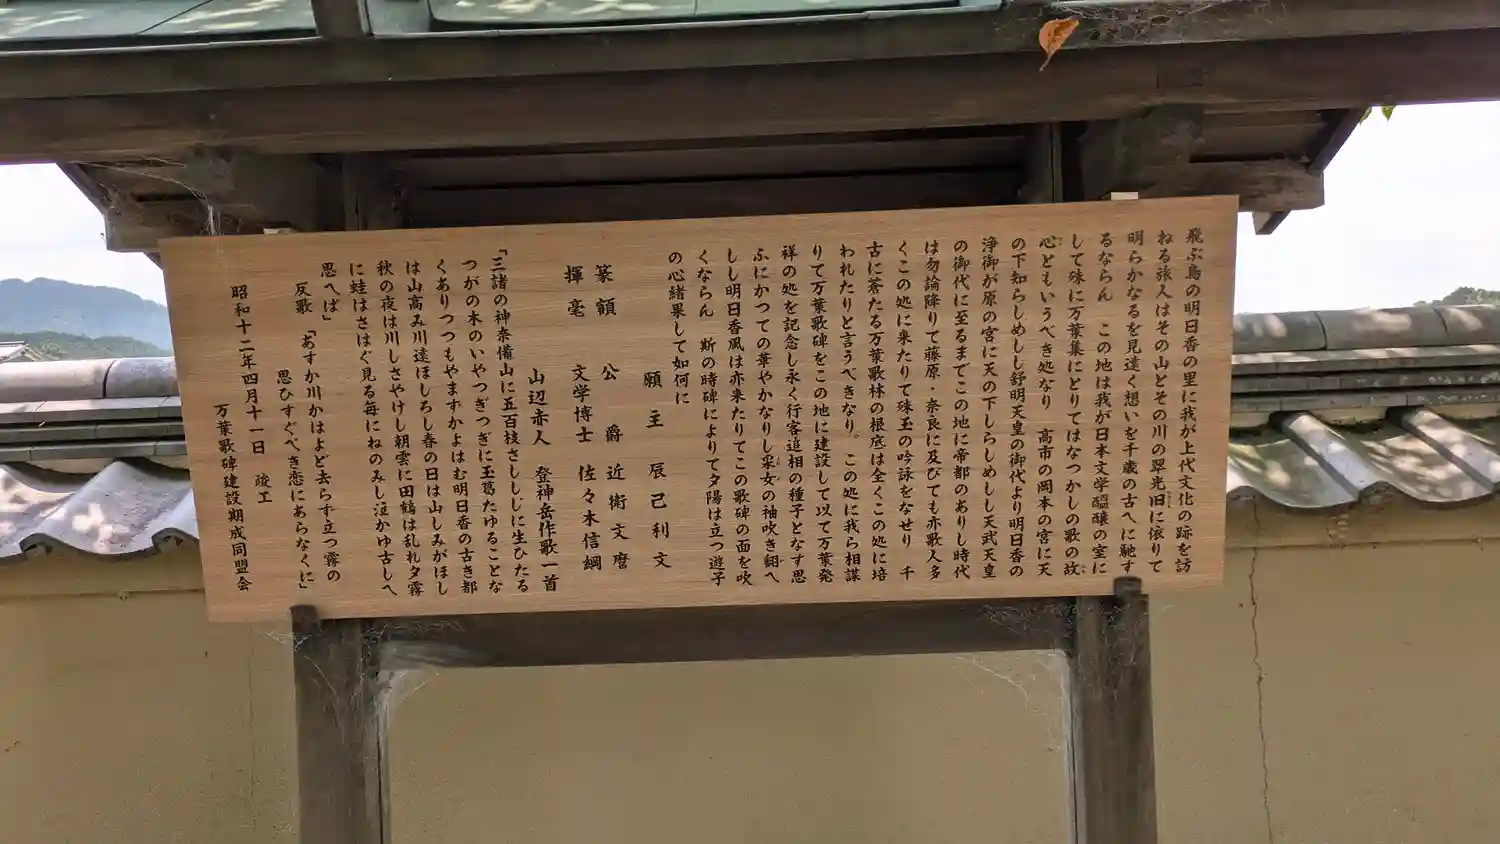 飛ぶ鳥の明日香の里に我が上代文化の跡を訪
ねる旅人はその山とその川の翠光旧に依りて
明らかなるを見遠く想いを千歳の古へに馳す
るならん　この地は我が日本文学醍醐の室に
して殊に万葉集にとりてはなつかしの歌の故
心ともいうべき処なり　高市の岡本の宮に天
の下知らしめしし舒明天皇の御代より明日香の
浄御が原の宮に天の下しらしめしし天武天皇
の御代に至るまでこの地に帝都のありし時代
は勿論降りて藤原・奈良に及びても亦歌人多
くこの処に来たりて珠玉の吟詠をなせり　千
古に蒼たる万葉歌林の根底は全くこの処に培
われたりと言うべきなり。この処に我ら相謀
りて万葉歌碑をこの地に建設して以て万葉発
祥の処を記念し永く行客追相の種子となす思
ふにかつての華やかなりし采女の袖吹き翻へ
しし明日香風は亦来たりてこの歌碑の面を吹
くならん　斯の時碑によりて夕陽は立つ遊子
の心緒果して如何に
願主　辰己利文
篆額　公爵　近衛文麿
揮毫　文学博士　佐々木信綱
山辺赤人　登神岳作歌一首
「三諸の神奈備山に五百枝さししじに生ひたる
つがの木のいやつぎつぎに玉葛たゆることな
くありつつもやまずかよはむ明日香の古き都
は山高み川遠ほしろし春の日は山しみがほし
秋の夜は川しさやけし朝雲に田鶴は乱れ夕霧
に蛙はさはぐ見る毎にねのみし泣かゆ古しへ
思へば」
反歌　「あすか川かはよど去らず立つ霧の
思ひすぐべき恋にあらなくに」
昭和十二年四月十一日　竣工
万葉歌碑建設期成同盟会